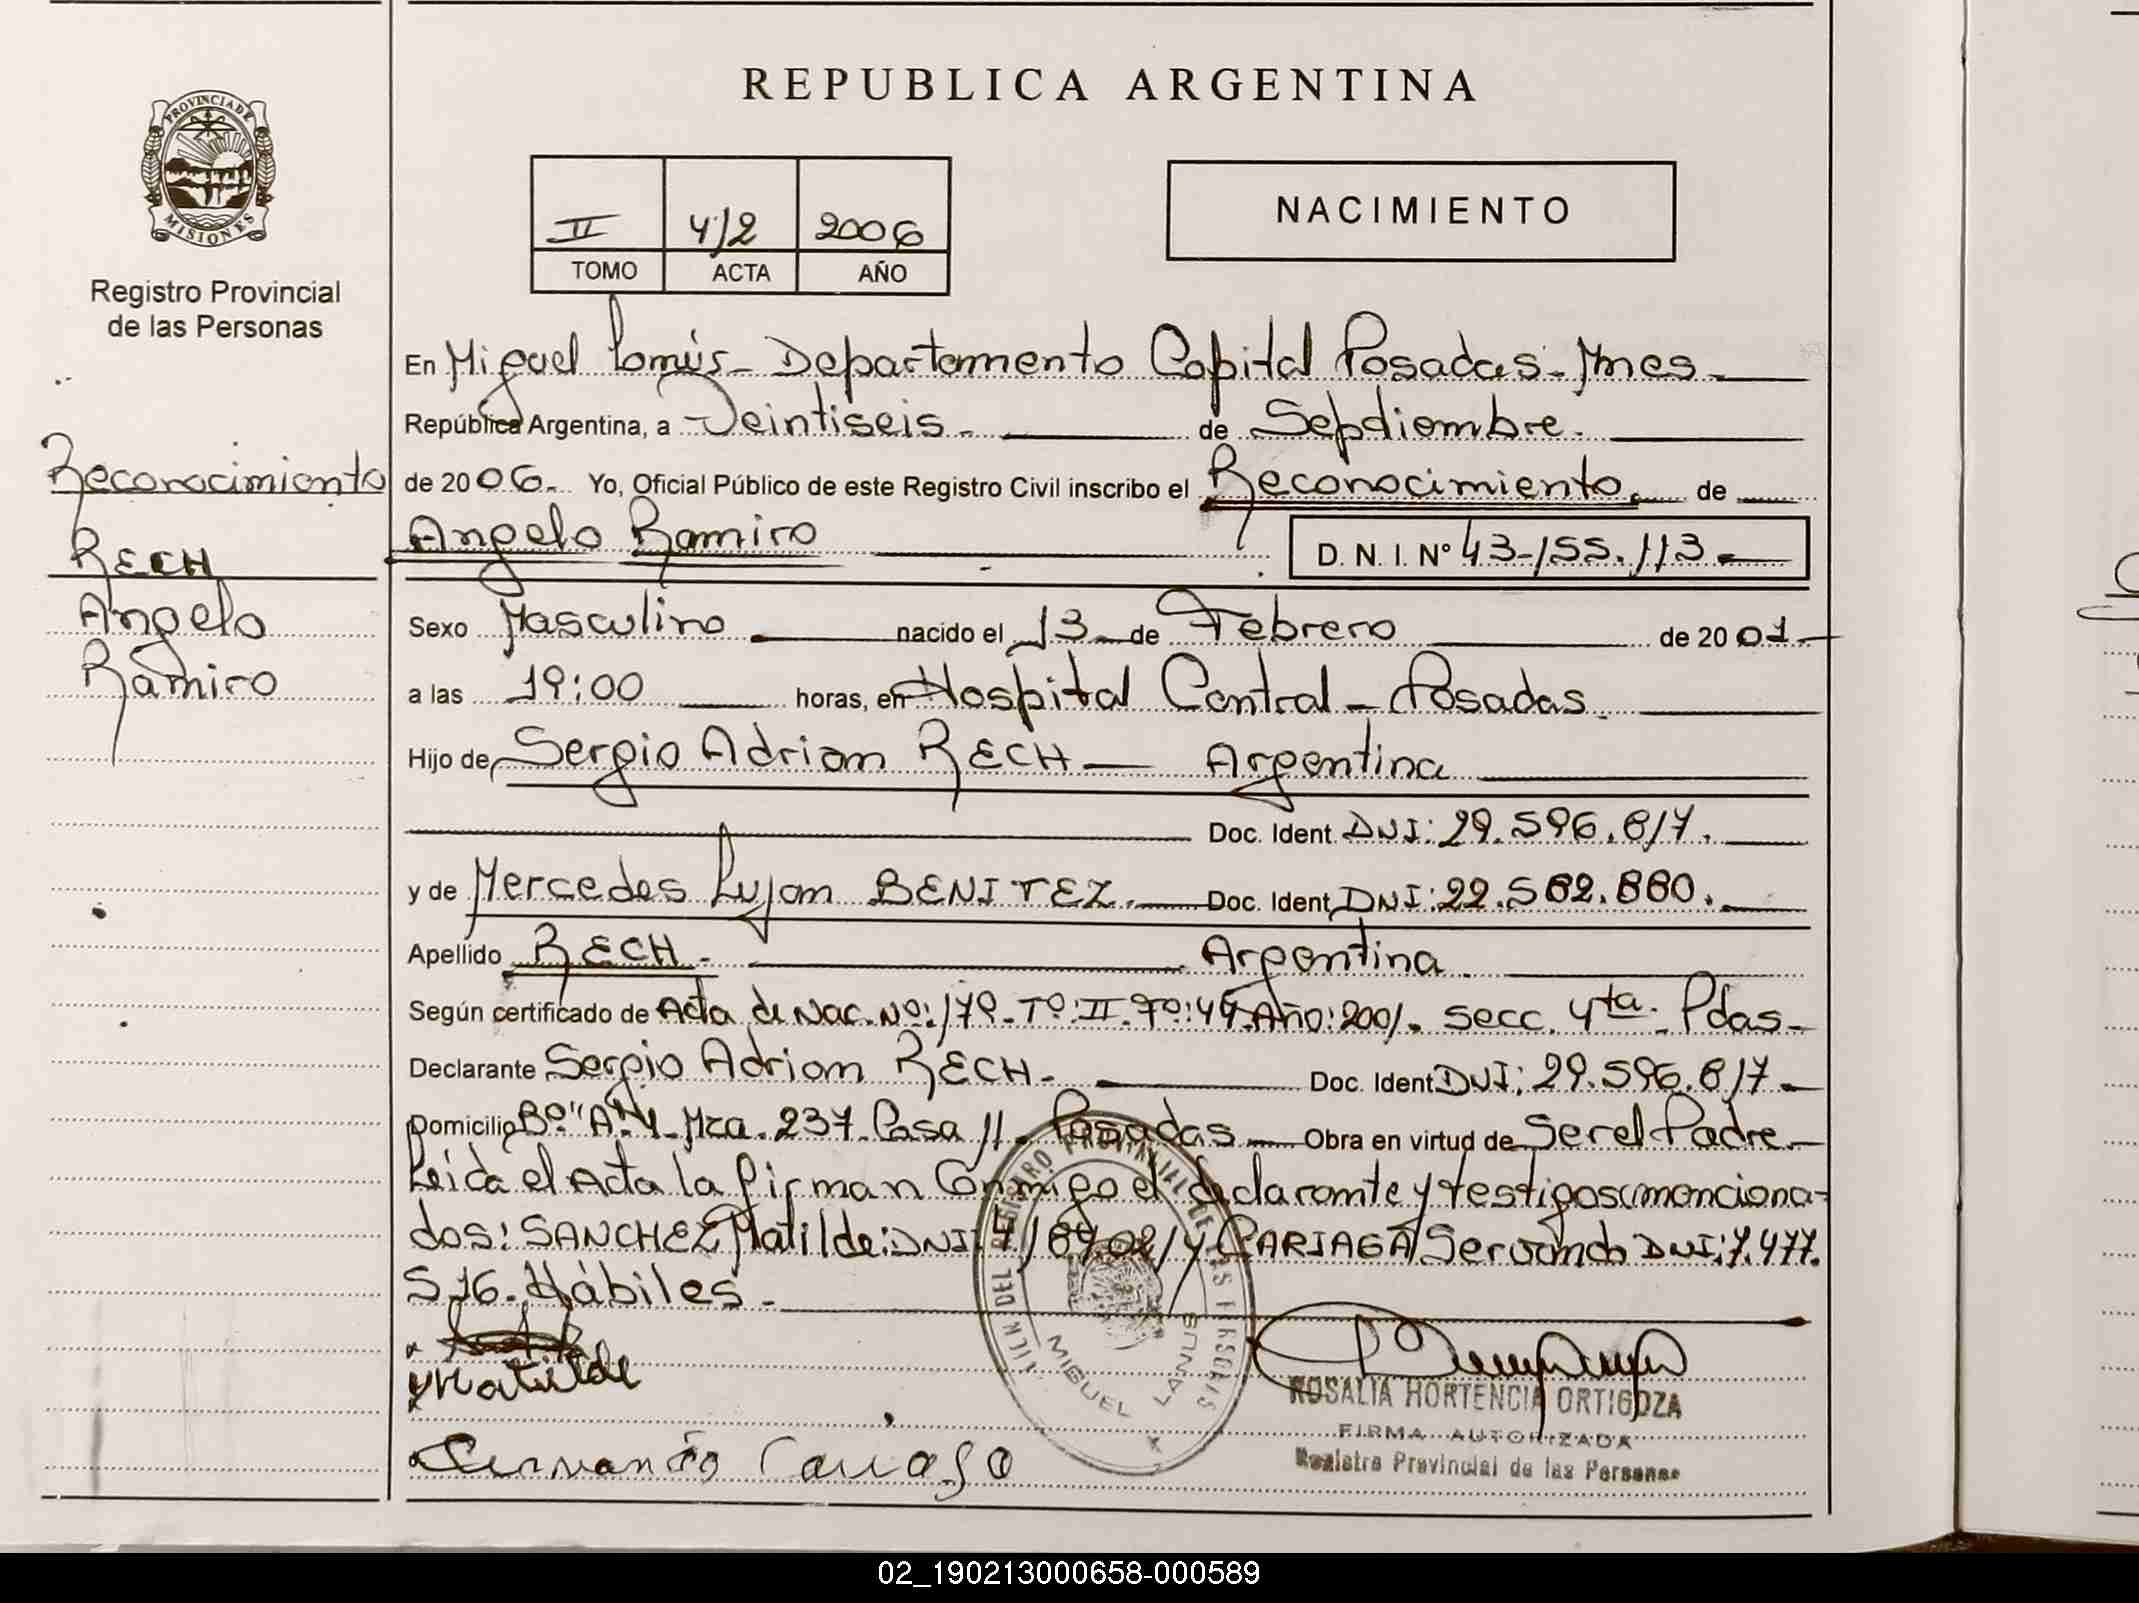 REPUBLICA ARGENTINA
PROVINCIA DE MISIONES
II 412 2006
TOMO ACTA AÑO
NACIMIENTO
Registro Provincial
de las Personas
En Miguel Lanús - Departamento Capital Posadas - Mnes -
República Argentina, a Veintiseis - de Septiembre -
de 2006 - Yo, Oficial Público de este Registro Civil inscribo el Reconocimiento de
Angelo Ramiro D. N. I. Nº 43-155.113 -
Reconocimiento
RECH
Angelo
Ramiro
Sexo Masculino nacido el 13 de Febrero de 2001 -
a las 19:00 horas, en Hospital Central - Posadas -
Hijo de Sergio Adrian RECH - Argentina
Doc. Ident. DNI: 29.596.817.
y de Mercedes Lujan BENITEZ. Doc. Ident. DNI: 22.562.880.
Apellido RECH - Argentina
Según certificado de Acta de Nac. Nº: 179 - Tº: II - Fº: 44 - Año: 2001. Secc. 4ta - Pdas -
Declarante Sergio Adrian RECH - Doc. Ident. DNI: 29.596.817 -
Domicilio Bº "A" 4 - Mza. 237 - Casa 11 - Posadas - Obra en virtud de Ser el Padre -
Leída el Acta la firman Conmigo el declarante y testigos menciona-
dos: SANCHEZ Matilde: DNI y CARIAGA Servando DNI: 7.477.
516 - Hábiles -
Matilde
Servando Cariaga
MIGUEL LANUS
ROSALIA HORTENCIA ORTIGOZA
FIRMA AUTORIZADA
Registro Provincial de las Personas
02_190213000658-000589